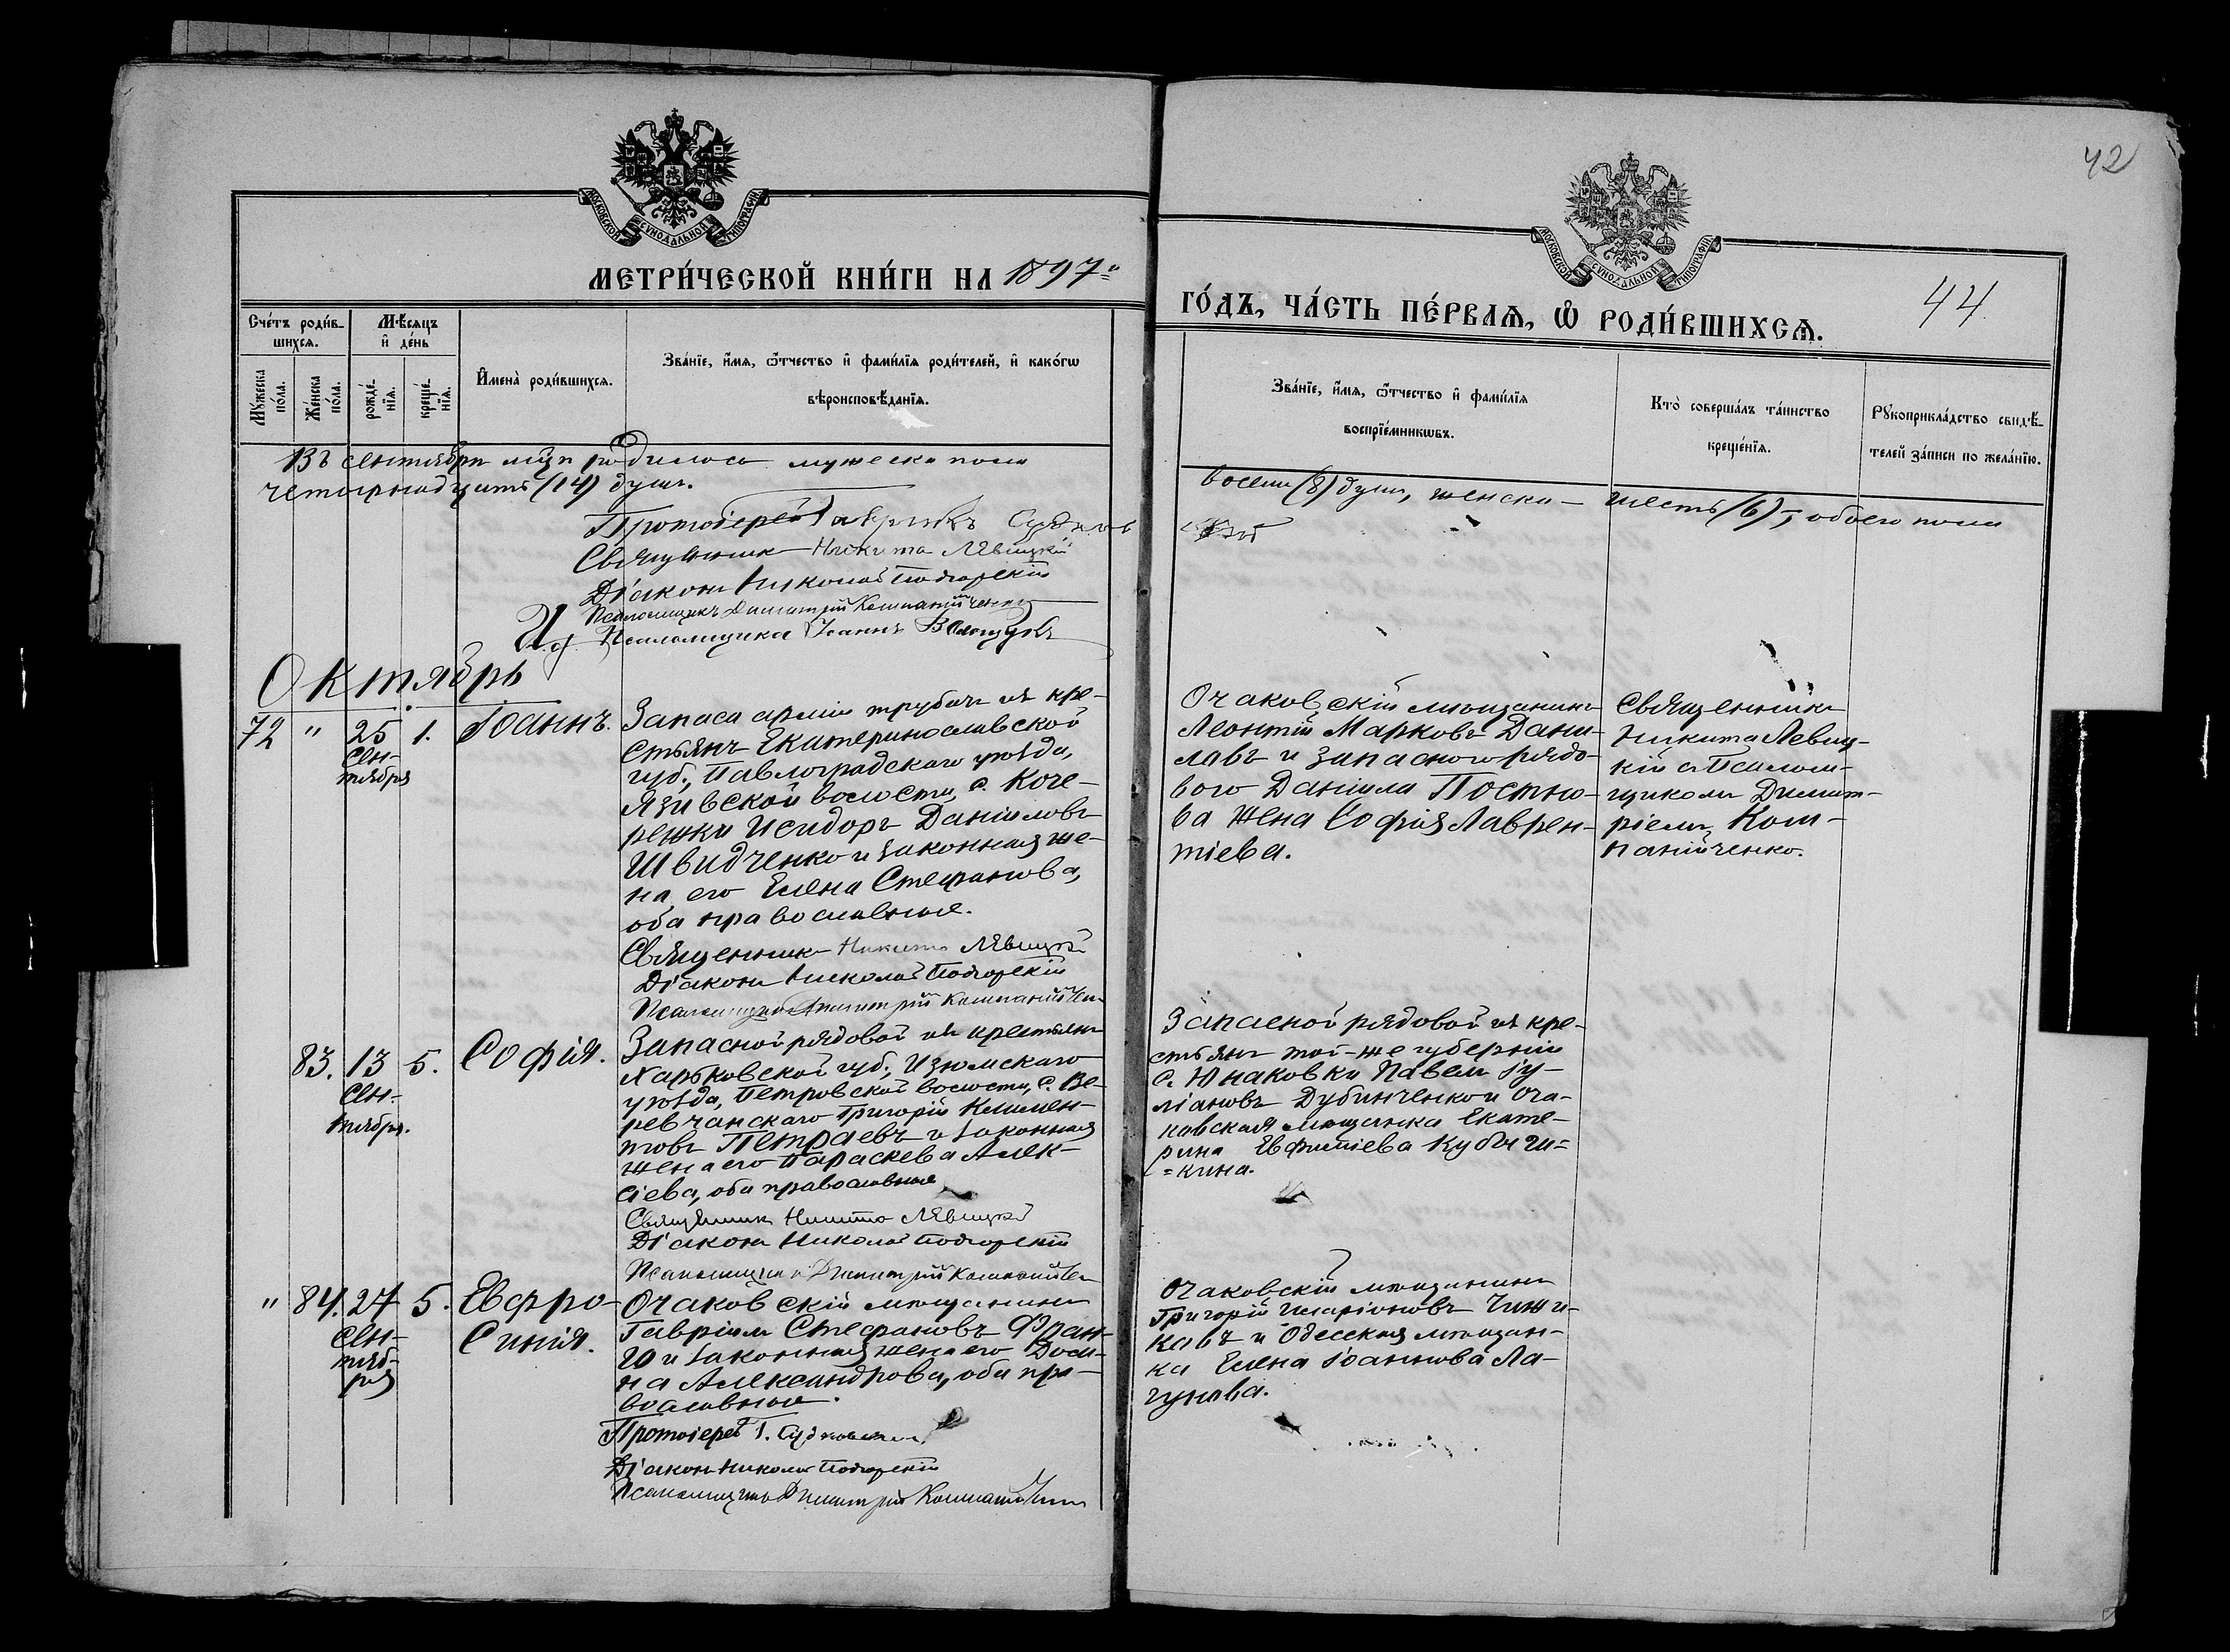 42
МОСКОВСКОЙ СѴНОДАЛЬНОЙ ТИПОГРАФІИ
МОСКОВСКОЙ СѴНОДАЛЬНОЙ ТИПОГРАФІИ
МЕТРИ́ЧЕСКОЙ КНИ́ГИ НА 1897
ГО́ДЪ, ЧА́СТЬ ПЕ́РВАѦ, Ѡ РОДИ́ВШИХСѦ.
44
Сче́тъ роди́в-
шихсѧ.
Мѣ́сѧцъ
и де́нь
Мꙋ́жеска
по́ла.
Же́нска
по́ла.
рожде́-
нїѧ.
креще́-
нїѧ.
Имена̀ роди́вшихсѧ.
Зва́нїе, и́мѧ, ѻ́тчество и фами́лїѧ роди́телей, и како́гѡ
вѣроисповѣ́данїѧ.
Зва́нїе, и́мѧ, ѻ́тчество и фами́лїѧ
воспрїе́мникѡвъ.
Кто̀ соверша́лъ та́инство
креще́нїѧ.
Рꙋкоприкла́дство свидѣ́-
телей за́писи по жела́нїю.
Въ сентябрѣ мцѣ родилось мужеска пола
восемь (8) душ, женска — шесть (6), обоего пола
четырнадцать (14) душъ.
Протоіерей Гавріилъ
Священникъ Никита Левицкій
Діаконъ Николай Подгорскій
Псаломщикъ Димитрій Компанійченко
И. д. Псаломщика Іоаннъ
Октябрь
72 " 25 1. Іоаннъ.
Сен-
тября
Запаса арміи трубачъ изъ кре-
стьянъ Екатеринославской
губ., Павлоградскаго уѣзда,
волости, с. Коче-
режки Исидоръ Даніиловъ
Швидченко и законная же-
на его Елена Стефанова,
оба православные.
Священникъ Никита Левицкій
Діаконъ Николай Подгорскій
Псаломщикъ Димитрій Компанійченко
Очаковскій мѣщанинъ
Леонтій Марковъ Дани-
ловъ и запасного рядо-
вого Даніила Постно-
ва жена Софія Лаврен-
тіева.
Священникъ
Никита Левиц-
кій с Псалом-
щикомъ Димит-
ріемъ Ком-
панійченко.
83. 13 5. Софія.
Сен-
тября.
Запасной рядовой изъ крестьянъ
Харьковской губ., Изюмскаго
уѣзда, Петровской волости, с. Ве-
ревчанскаго Григорій Климен-
товъ Петраевъ и законная
жена его Параскева Алек-
сіева, оба православные
Священникъ Никита Левицкій
Діаконъ Николай Подгорскій
Псаломщикъ Димитрій Компанійченко
Запасной рядовой изъ кре-
стьянъ той-же губерніи
с. Юнаковки Павелъ Іу-
ліановъ Дубинченко и Оча-
ковская мѣщанка Екате-
рина Евфиміева
=кина.
" 84. 27 5. Евфро-
синія.
Сен-
тяб-
ря
Очаковскій мѣщанинъ
Гавріилъ Стефановъ Фран-
го и законная жена его Дом-
на Александрова, оба пра-
вославные.
Протоіерей Г.
Діаконъ Николай Подгорскій
Псаломщикъ Димитрій Компанійченко
Очаковскій мѣщанинъ
Григорій Иларіоновъ Чижи-
ковъ и Одесская мѣщан-
ка Елена Іоаннова Ла-
гунова.